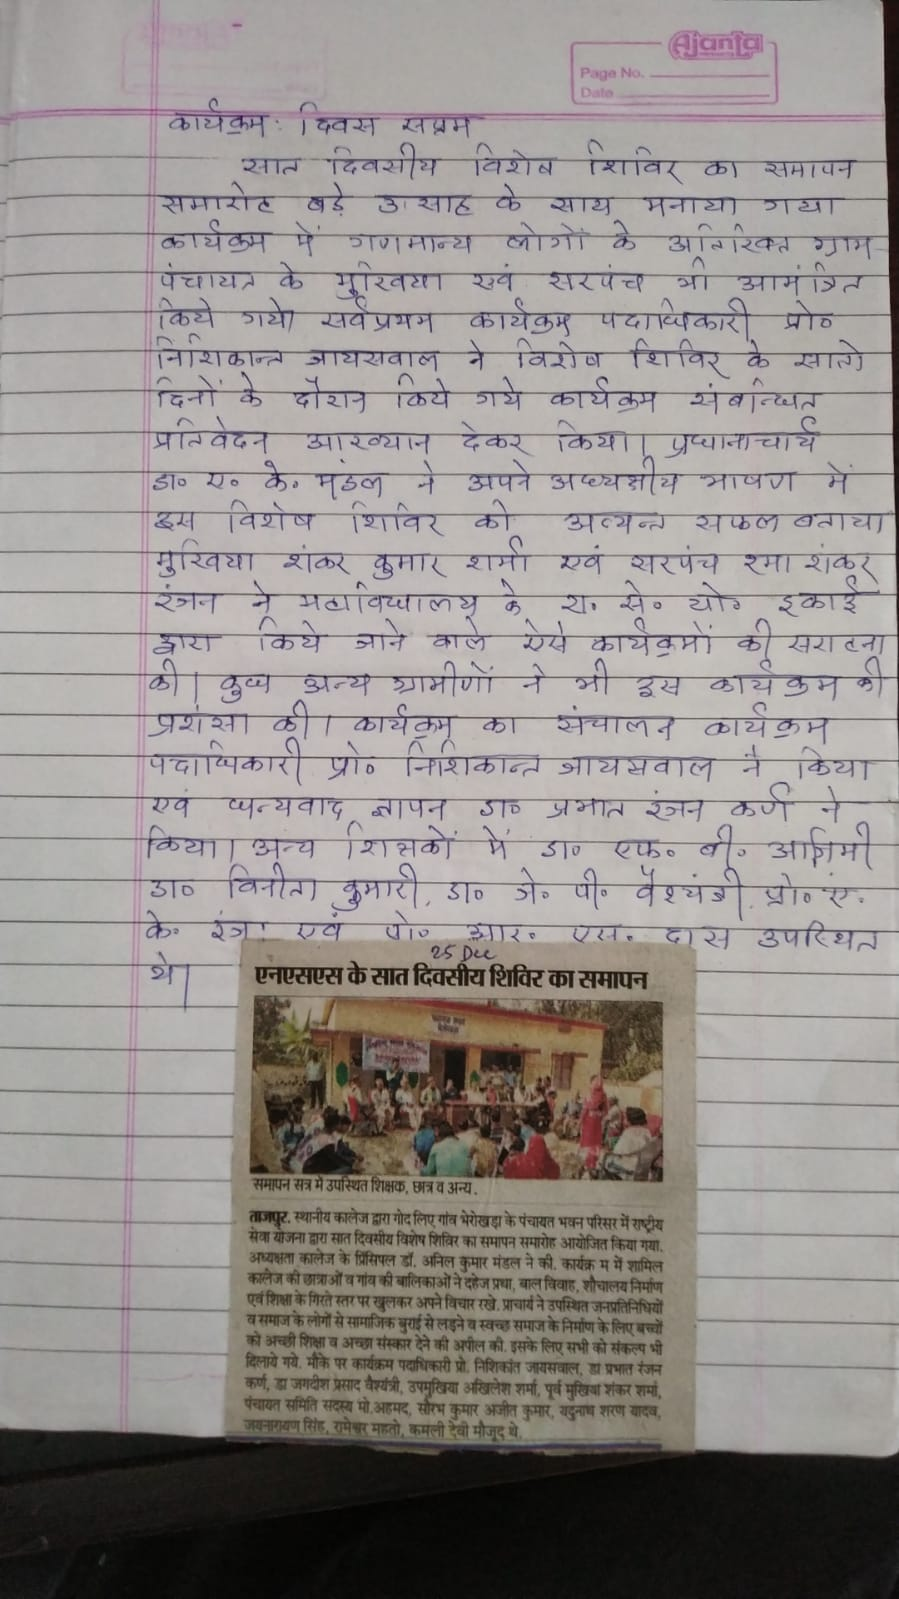 Ajanta
Page No.
Date
कार्यक्रम: दिवस सप्तम
सात दिवसीय विशेष शिविर का समापन
समारोह बड़े उत्साह के साथ मनाया गया
कार्यक्रम में गणमान्य लोगों के अतिरिक्त ग्राम
पंचायत के मुखिया एवं सरपंच भी आमंत्रित
किये गये। सर्वप्रथम कार्यक्रम पदाधिकारी प्रो०
निशिकान्त जायसवाल ने विशेष शिविर के सातो
दिनों के दौरान किये गये कार्यक्रम संबन्धित
प्रतिवेदन आख्यान देकर किया। प्रधानाचार्य
डा० ए० के० मंडल ने अपने अध्यक्षीय भाषण में
इस विशेष शिविर को अत्यन्त सफल बताया
मुखिया शंकर कुमार शर्मा एवं सरपंच रमा शंकर
रंजन ने महाविद्यालय के रा० से० यो० इकाई
द्वारा किये जाने वाले ऐसे कार्यक्रमों की सराहना
की। कुछ अन्य ग्रामीणों ने भी इस कार्यक्रम की
प्रशंसा की। कार्यक्रम का संचालन कार्यक्रम
पदाधिकारी प्रो० निशिकान्त जायसवाल ने किया
एवं धन्यवाद ज्ञापन डा० प्रभात रंजन कर्ण ने
किया। अन्य शिक्षकों में डा० एफ० बी०
डा० विनीता कुमारी, डा० जे० पी० वैश्यंत्री, प्रो० ए.
के० एवं प्रो० आर. एस. दास उपस्थित
थे।
25 Dec
एनएसएस के सात दिवसीय शिविर का समापन
समापन सत्र में उपस्थित शिक्षक, छात्र व अन्य.
ताजपुर. स्थानीय कालेज द्वारा गोद लिए गांव भेरोखड़ा के पंचायत भवन परिसर में राष्ट्रीय
सेवा योजना द्वारा सात दिवसीय विशेष शिविर का समापन समारोह आयोजित किया गया.
अध्यक्षता कालेज के प्रिंसिपल डॉ. अनिल कुमार मंडल ने की. कार्यक्र म में शामिल
कालेज की छात्राओं व गांव की बालिकाओं ने दहेज प्रथा, बाल विवाह, शौचालय निर्माण
एवं शिक्षा के गिरते स्तर पर खुलकर अपने विचार रखे. प्राचार्य ने उपस्थित जनप्रतिनिधियों
व समाज के लोगों से सामाजिक बुराई से लड़ने व स्वच्छ समाज के निर्माण के लिए बच्चों
को अच्छी शिक्षा व अच्छा संस्कार देने की अपील की. इसके लिए सभी को संकल्प भी
दिलाये गये. मौके पर कार्यक्रम पदाधिकारी प्रो. निशिकांत जायसवाल, डा प्रभात रंजन
कर्ण, डा जगदीश प्रसाद वैश्यंत्री, उपमुखिया अखिलेश शर्मा, पूर्व मुखिया शंकर शर्मा,
पंचायत समिति सदस्य मो.अहमद, सौरभ कुमार अजीत कुमार, यदुनाथ शरण यादव,
जयनारायण सिंह, रामेश्वर महतो, कमली देवी मौजूद थे.